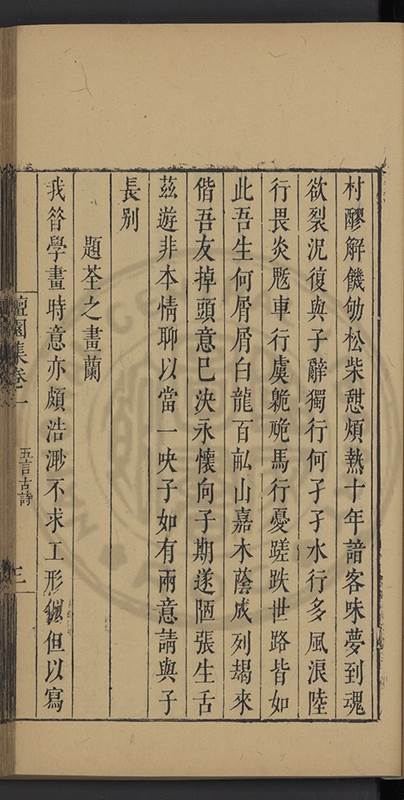 村醪解饑劬松柴憇煩熱十年諳客味夢到魂
欲裂況復與子辭獨行何孑孑水行多風浪陸
行畏炎尵車行虞臲卼馬行憂蹉跌世路皆如
此吾生何屑屑白龍百畝山嘉木蔭成列朅來
偕吾友掉頭意已決永懷向子期遂陋張生舌
茲遊非本情聊以當一吷子如有兩意請與子
長别
題荃之畫蘭
我昝學畫時意亦頗浩渺不求工形似但以寫
檀園集卷一
五言古詩
三